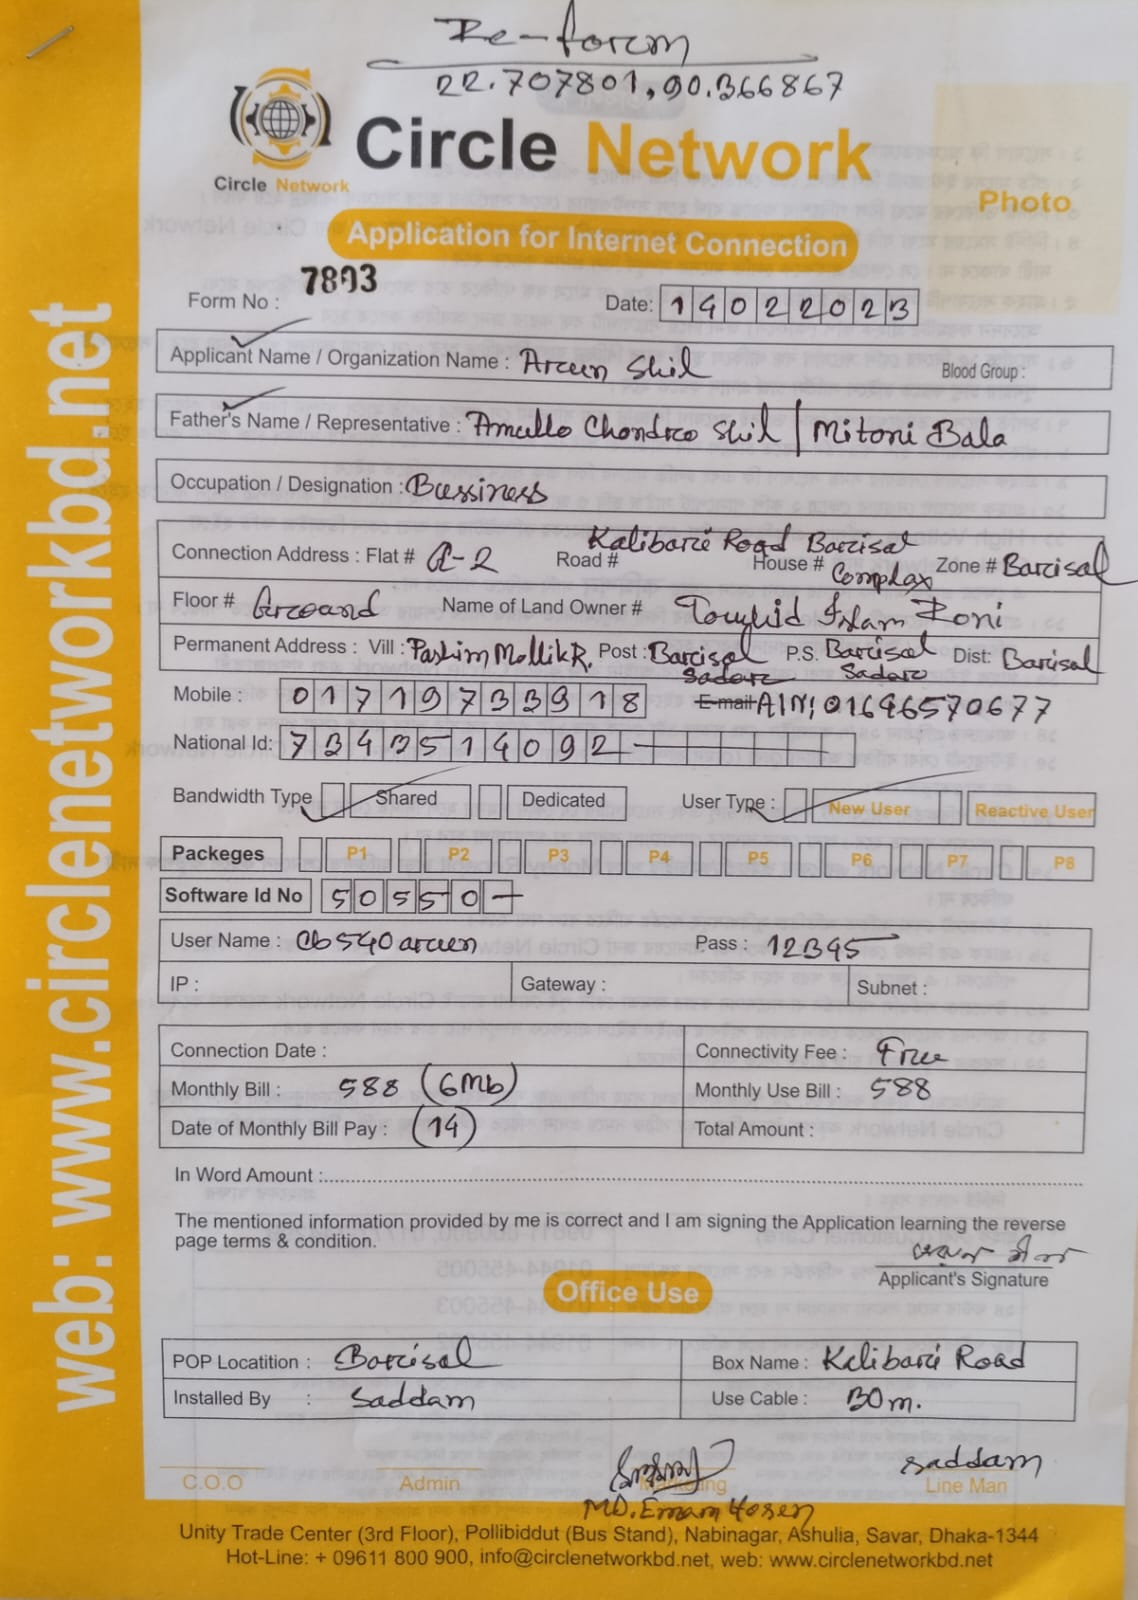 Re-forom
22.707801, 90.366867
Circle Network
Circle Network
Photo
Application for Internet Connection
Form No : 7893
Date: 14022023
Applicant Name / Organization Name : Arun Shil Blood Group :
Father's Name / Representative : Amullo Chondro Shil / Mitoni Bala
Occupation / Designation : Bussiness
Connection Address : Flat # A-2 Road # Kalibari Road Barisal House # Complax Zone # Barisal
Floor # Ground Name of Land Owner # Towhid Islam Roni
Permanent Address : Vill : Pashim Mollik R. Post : Barisal Sadar P.S. Barisal Sadar Dist: Barisal
Mobile : 01719733918 E-mail AIN: 01696570677
National Id: 7343514092
Bandwidth Type Shared Dedicated User Type : New User Reactive User
Packeges P1 P2 P3 P4 P5 P6 P7 P8
Software Id No 50550
User Name : cb540arun Pass : 12345
IP : Gateway : Subnet :
Connection Date : Connectivity Fee : Free
Monthly Bill : 588 (6Mb) Monthly Use Bill : 588
Date of Monthly Bill Pay : (14) Total Amount :
In Word Amount :
The mentioned information provided by me is correct and I am signing the Application learning the reverse
page terms & condition.
Applicant's Signature
Office Use
POP Locatition : Barisal Box Name : Kalibari Road
Installed By : Saddam Use Cable : 30m.
saddam
C.O.O Admin Marketing Line Man
MD. Emam Hosen
Unity Trade Center (3rd Floor), Pollibiddut (Bus Stand), Nabinagar, Ashulia, Savar, Dhaka-1344
Hot-Line: + 09611 800 900, info@circlenetworkbd.net, web: www.circlenetworkbd.net
web: www.circlenetworkbd.net